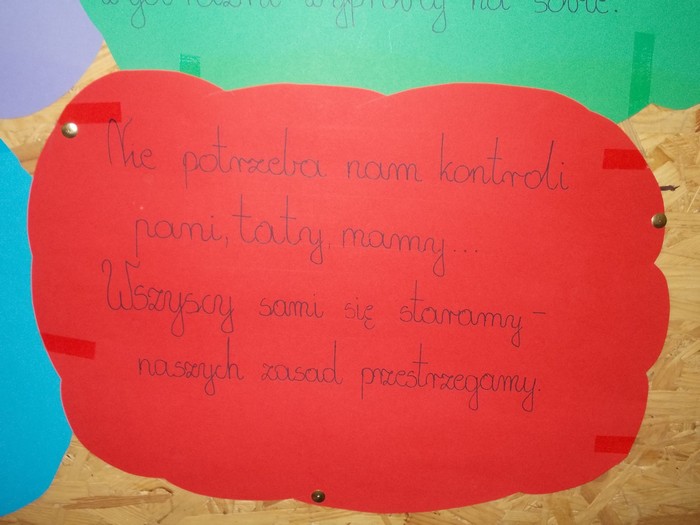 wypróbuj na sobie.
Nie potrzeba nam kontroli
pani, taty, mamy...
Wszyscy sami się staramy -
naszych zasad przestrzegamy.